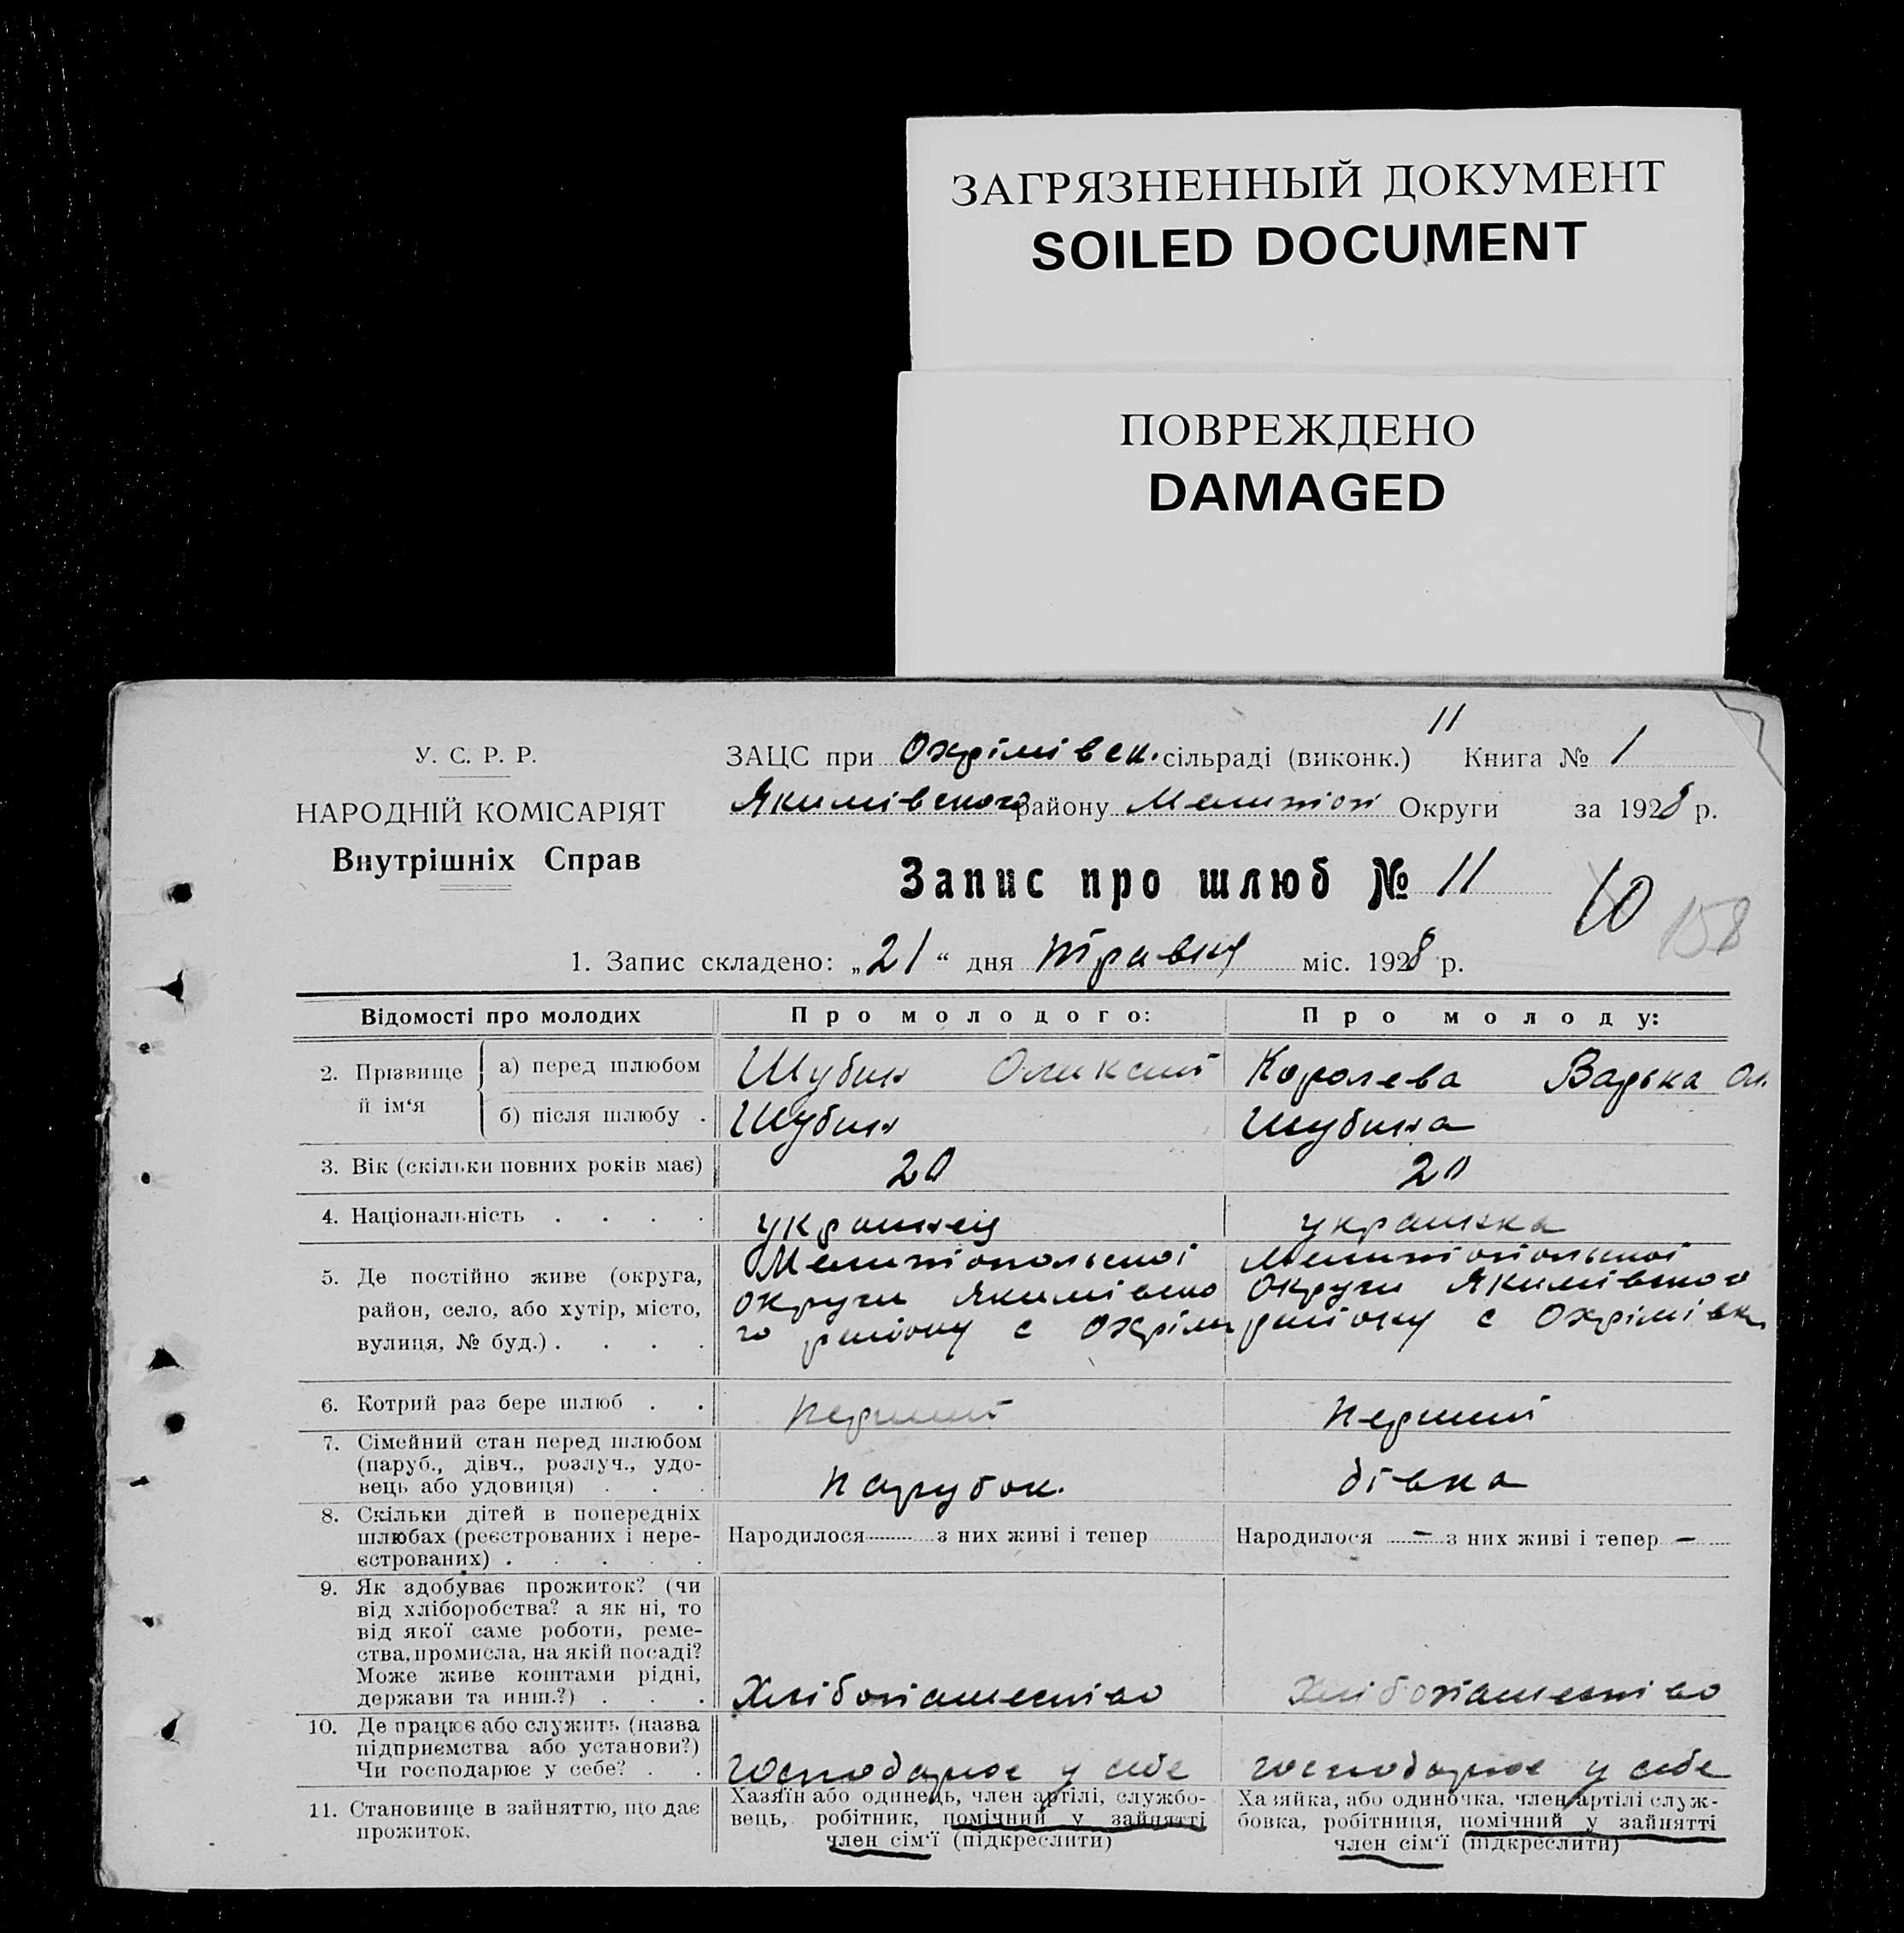 ЗАГРЯЗНЕННЫЙ ДОКУМЕНТ
SOILED DOCUMENT
ПОВРЕЖДЕНО
DAMAGED
11
У. С. Р. Р.
НАРОДНІЙ КОМІСАРІЯТ
Внутрішніх Справ
ЗАЦС при Охрімівськ. сільраді (виконк.) Книга № 1
Якимівського району Мелитоп Округи за 1928 р.
Запис про шлюб № 11
10 158
1. Запис складено: „21“ дня травня міс. 1928 р.
Відомості про молодих Про молодого: Про молоду:
2. Прізвище й ім‘я
а) перед шлюбом Шубин Оликсий Королева Варька Ол.
б) після шлюбу . Шубин Шубина
3. Вік (скільки повних років має) 20 20
4. Національність . . . . украинец украинка
5. Де постійно живе (округа,
район, село, або хутір, місто,
вулиця, № буд.) . . . .
Мелитопольської
округи Якимівсько
го району с Охрім
Мелитопольської
Округи Якимівського
району с Охрімівк
6. Котрий раз бере шлюб . . перший перший
7. Сімейний стан перед шлюбом
(паруб., дівч., розлуч., удо-
вець або удовиця) . . .
парубок. дівка
8. Скільки дітей в попередніх
шлюбах (реєстрованих і нере-
єстрованих) . . . . .
Народилося з них живі і тепер
Народилося – з них живі і тепер –
9. Як здобуває прожиток? (чи
від хліборобства? а як ні, то
від якої саме роботи, реме-
ства, промисла, на якій посаді?
Може живе коштами рідні,
держави та инш.?) . . .
Хлібопашество Хлібопашество
10. Де працює або служить (назва
підприємства або установи?)
Чи господарює у себе? . .
господарює у себе господарює у себе
11. Становище в зайняттю, що дає
прожиток.
Хазяїн або одинець, член артілі, службо-
вець, робітник, помічний у зайнятті
член сім‘ї (підкреслити)
Хазяйка, або одиночка, член артілі служ-
бовка, робітниця, помічний у зайнятті
член сім‘ї (підкреслити)